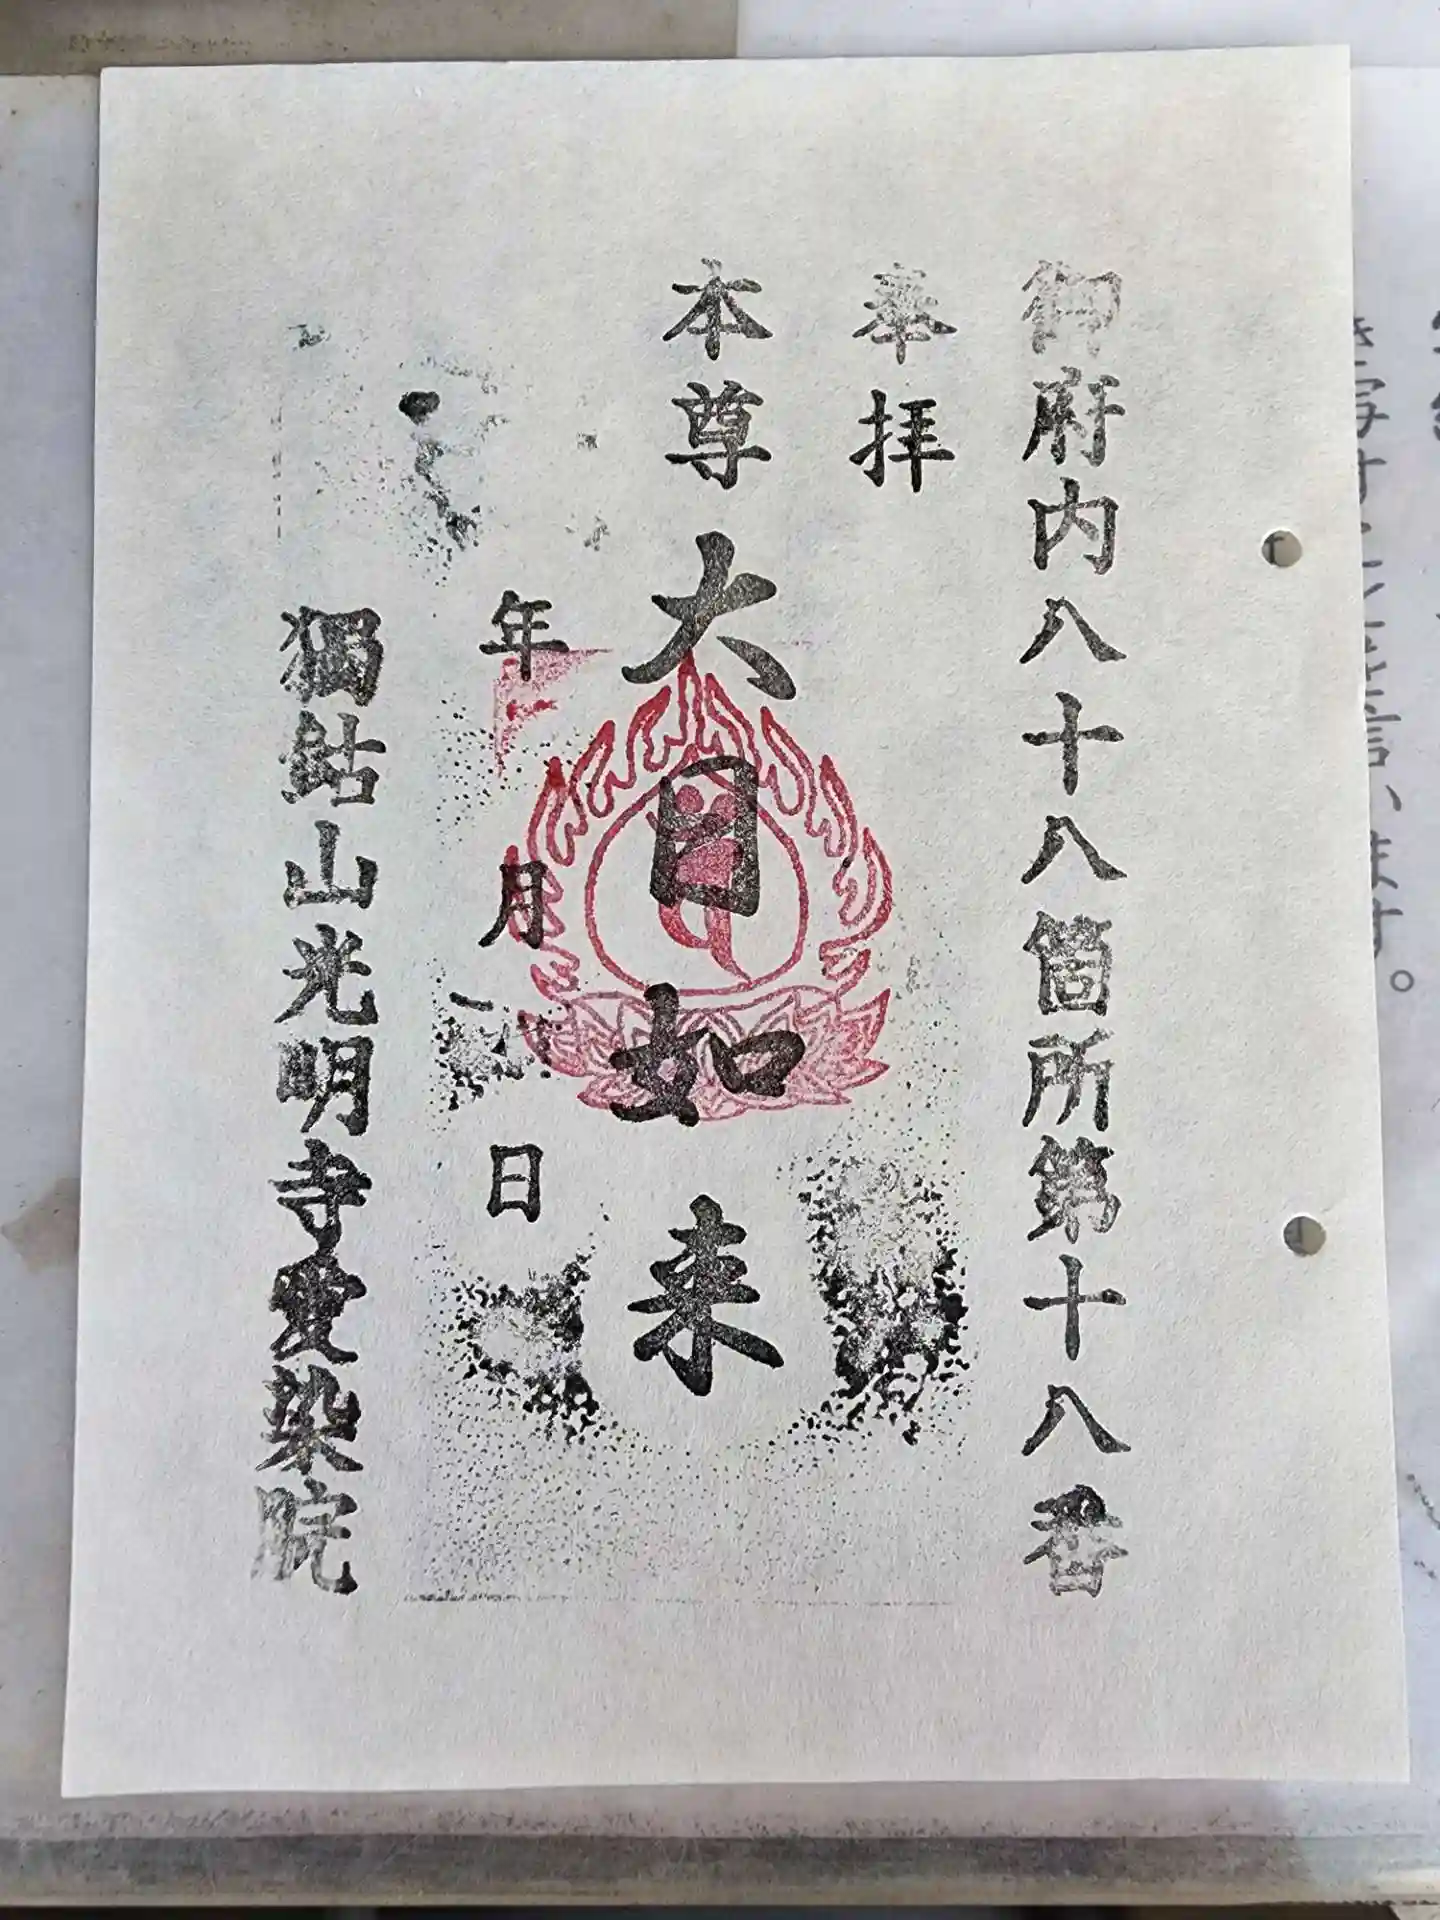 御府内八十八箇所第十八番
奉拝
本尊大日如来
年月日
獨鈷山光明寺愛染院